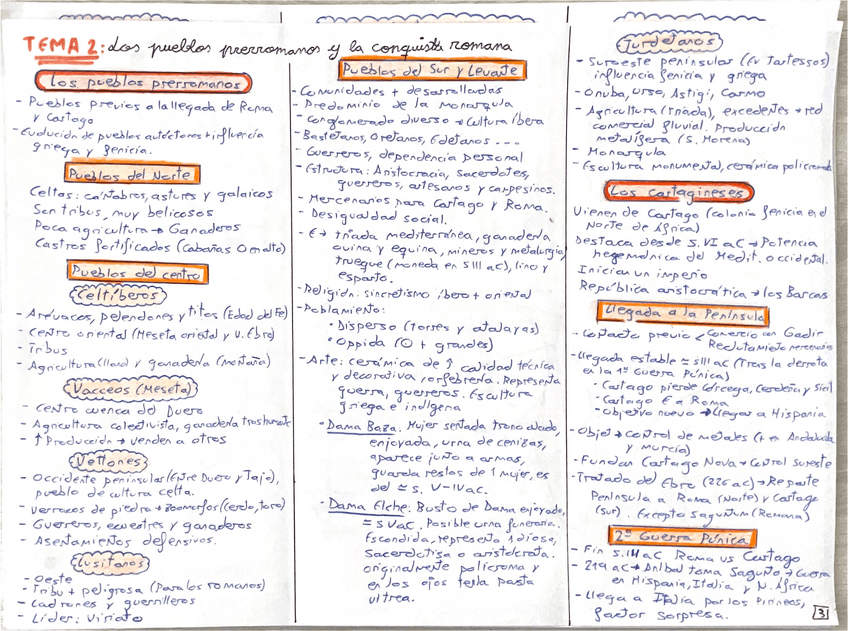 TEMA 2: Los pueblos prerromanos y la conquista romana
Los pueblos prerromanos
- Pueblos previos a la llegada de Roma
y Cartago
- Evolución de pueblos autóctonos + influencia
griega y fenicia.
Pueblos del Norte
Celtas: cántabros, astures y galaicos
Son tribus, muy belicosos
Poca agricultura → Ganaderos
Castros fortificados (cabañas O en alto)
Pueblos del centro
Celtíberos
- Arévacos, pelendones y titos (Edad del Fe)
- Centro oriental (Meseta oriental y V. Ebro)
- Tribus
- Agricultura (llano) y ganadería (montaña)
Vacceos (Meseta)
- Centro cuenca del Duero
- Agricultura colectivista, ganadería trashumante
- ↑ Producción → venden a otros
Vettones
- Occidente peninsular (Entre Duero y Tajo),
pueblo de cultura celta.
- Verracos de piedra → zoomorfos (cerdo, toro)
- Guerreros, ecuestres y ganaderos
- Asentamientos defensivos.
Lusitanos
- Oeste
- Tribu + peligrosa (Para los romanos)
- Ladrones y guerrilleros
- Líder: Viriato
Pueblos del Sur y Levante
- Comunidades + desarrolladas
- Predominio de la monarquía
- Conglomerado diverso → Cultura íbera
- Bastetanos, Oretanos, Edetanos ...
- Guerreros, dependencia personal
- Estructura: Aristocracia, Sacerdotes,
guerreros, artesanos y campesinos.
- Mercenarios para Cartago y Roma.
- Desigualdad social.
- E → triada mediterránea, ganadería
ovina y equina, mineros y metalurgia,
trueque (moneda en S III aC), lino y
esparto.
- Religión: sincretismo íbero + oriental
- Poblamiento:
• Disperso (torres y atalayas)
• Oppida (O + grandes)
- Arte: cerámica de ↑ calidad técnica
y decorativa + orfebrería. Representa
guerra, guerreros. Escultura
griega e indígena
• Dama Baza: Mujer sentada trono alado,
enjoyada, urna de cenizas,
aparece junto a armas,
guarda restos de 1 mujer, es
del ≃ s. V-IV aC.
• Dama Elche: Busto de Dama enjoyada,
≃ s V aC. Posible urna funeraria.
Escondida, representa 1 diosa,
Sacerdotisa o aristócrata.
originalmente polícroma y
en los ojos tenía pasta
vítrea.
Turdetanos
- Suroeste peninsular (Ev Tartessos)
influencia fenicia y griega
- Onuba, Urso, Astigi, Carmo
- Agricultura (triada), excedentes → red
comercial fluvial. Producción
metalífera (S. Morena)
- Monarquía
- Escultura monumental, cerámica policromada
Los cartagineses
Vienen de Cartago (colonia fenicia en el
Norte de África)
Destaca desde S. VI aC → Potencia
hegemónica del Medit. occidental.
Inician un imperio
República aristocrática → los Barcas
Llegada a la Península
- Contacto previo < Comercio con Gadir
Reclutamiento mercenarios
- Llegada estable ≃ s III aC (Tras la derrota
en la 1ª Guerra Púnica)
- Cartago pierde Córcega, Cerdeña y Sicil
- Cartago € a Roma
- Objetivo nuevo → llegar a Hispania
- Objet → control de metales (+ en Andalucía
y Murcia)
- Fundan Cartago Nova → Control Sureste
- Tratado del Ebro (226 aC) → Reparte
Península a Roma (Norte) y Cartago
(Sur). Excepto Saguntum (Romana)
2ª Guerra Púnica
- Fin S. III aC Roma vs Cartago
- 219 aC → Aníbal toma Sagunto → Guerra
en Hispania, Italia y N. África
- Llega a Italia por los Pirineos,
factor sorpresa.
3